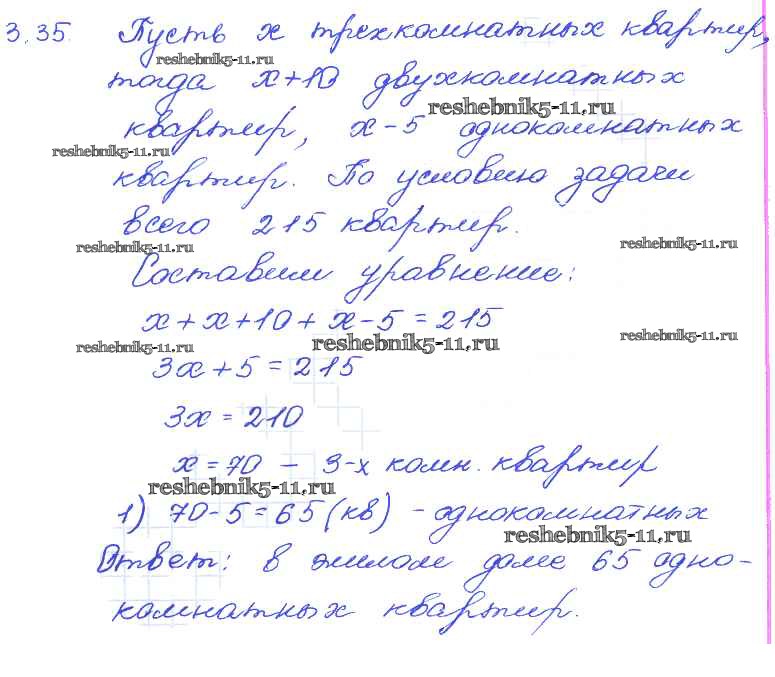 3.35 Пусть x трехкомнатных квартир,
reshebnik5-11.ru
тогда x+10 двухкомнатных
reshebnik5-11.ru
квартир, x-5 однокомнатных
reshebnik5-11.ru
квартир. По условию задачи
всего 215 квартир.
reshebnik5-11.ru reshebnik5-11.ru
Составим уравнение:
x+x+10+x-5=215
reshebnik5-11.ru reshebnik5-11.ru reshebnik5-11.ru
3x+5=215
3x=210
x=70 - 3-х комн. квартир
reshebnik5-11.ru
1) 70-5=65(кв) - однокомнатных
reshebnik5-11.ru
Ответ: в жилом доме 65 одно-
комнатных квартир.